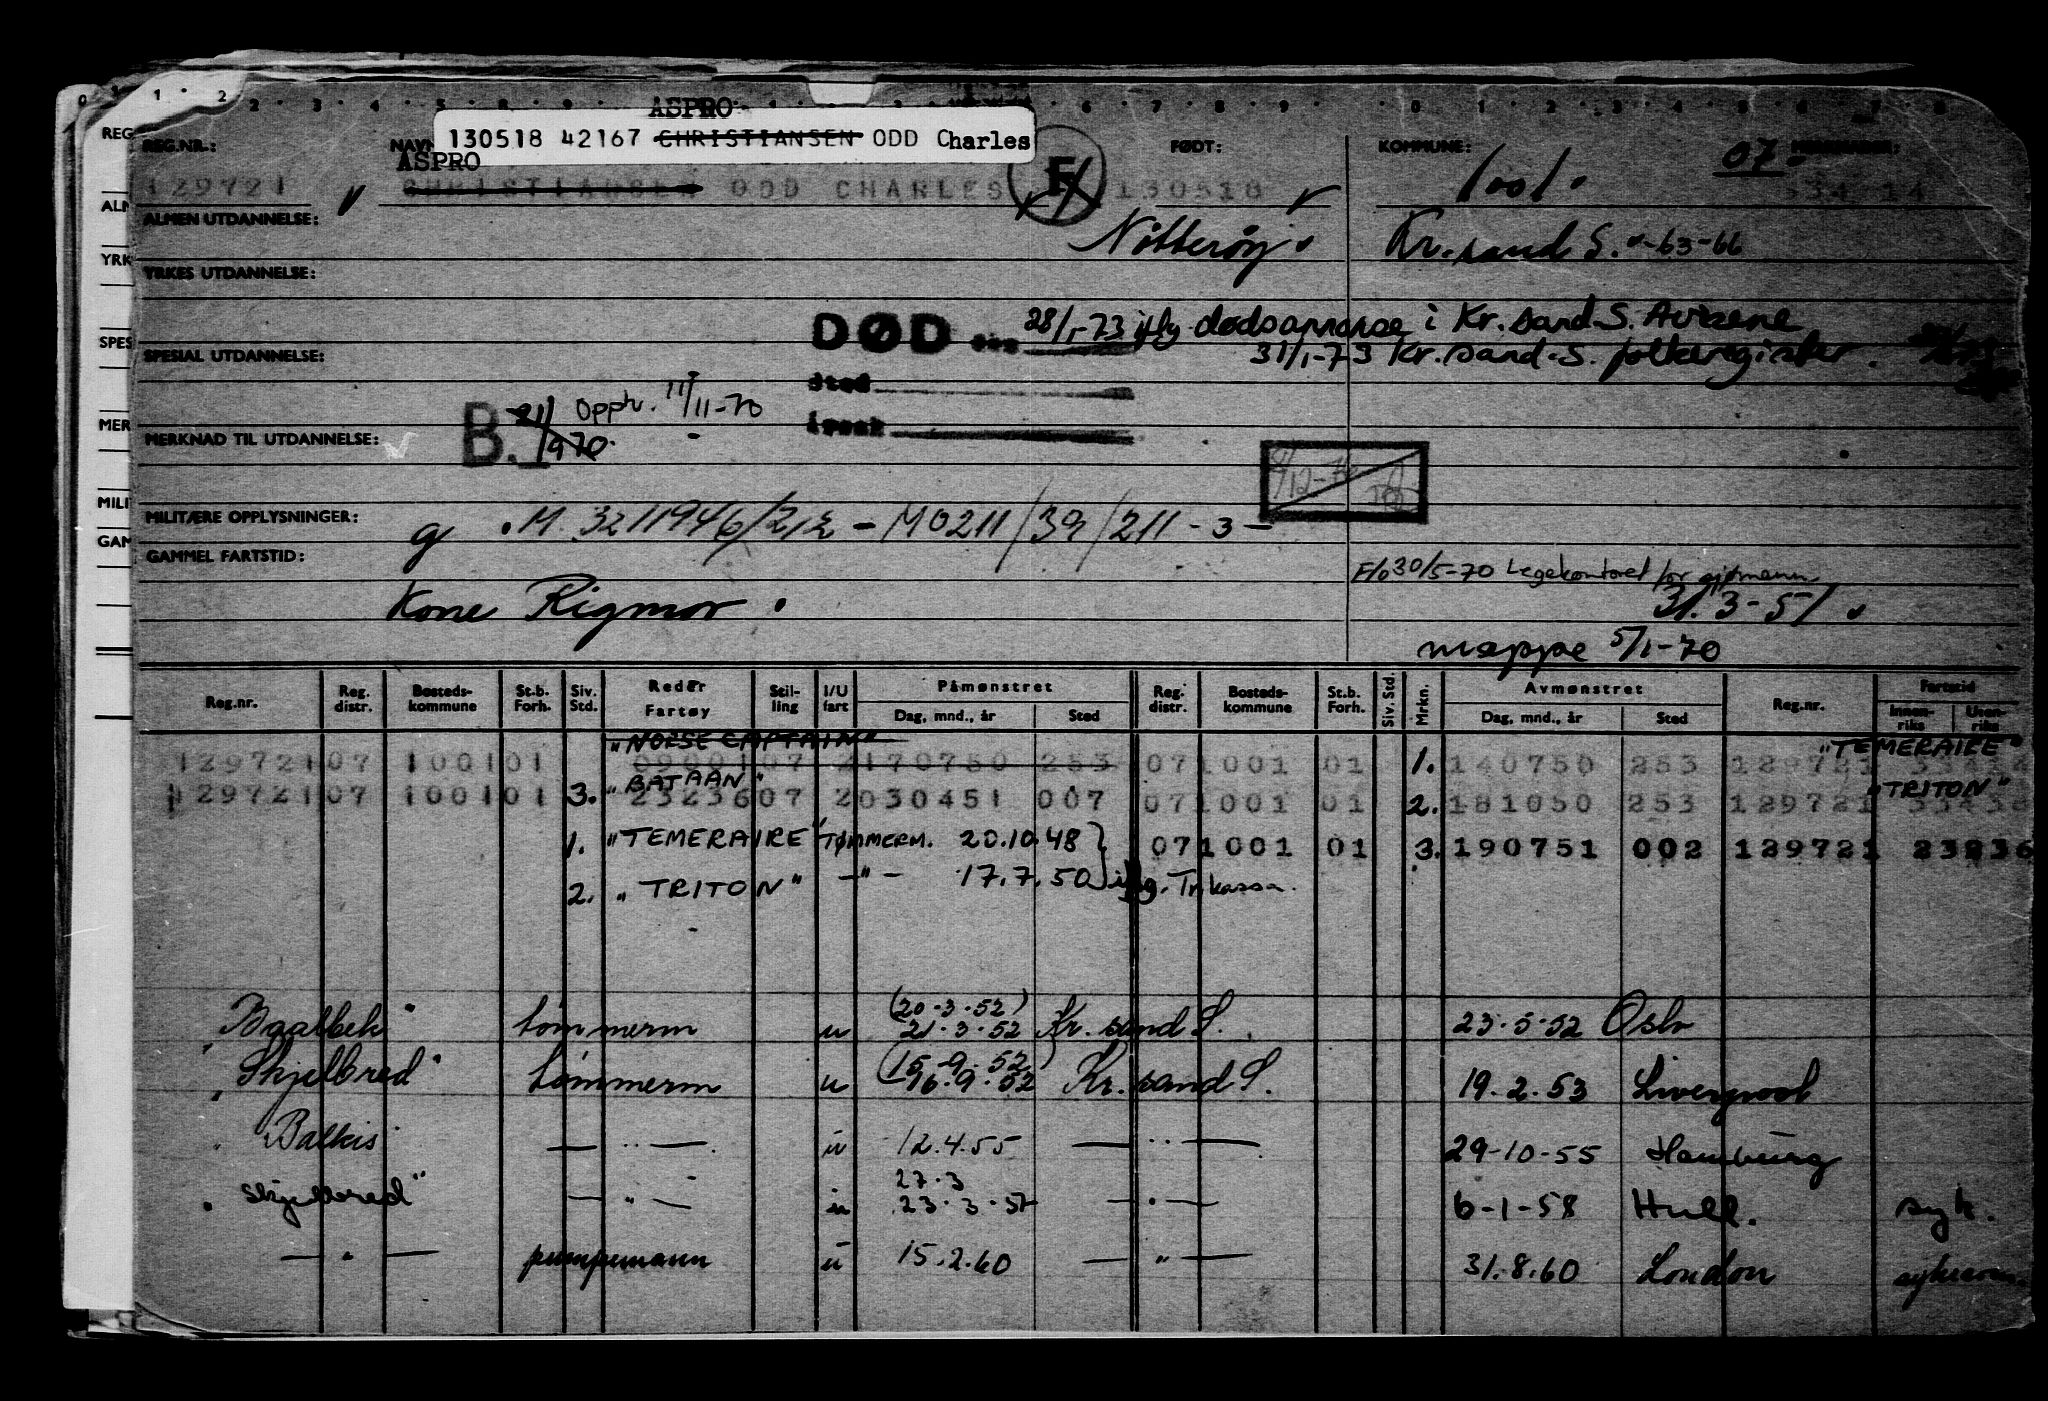 ASPRO
130518 42167 CHRISTIANSEN ODD Charles
REG.NR.: NAVN FØDT: KOMMUNE: 07.
ASPRO
129721 CHRISTIANSEN ODD CHARLES F 130518 1001. 534 14
ALMEN UTDANNELSE: Nøtterøy. Kr.sand S. -63-66
YRKES UTDANNELSE:
DØD 28/1-73 iflg. dødsannonse i Kr.sand S. Avisene
SPESIAL UTDANNELSE: 31/1-73 Kr.sand-S. folkeregister.
sted
B. 21/1 970. Opph. 11/11-70
MERKNAD TIL UTDANNELSE: årsak
MILITÆRE OPPLYSNINGER: g .M. 3211946/212 - M0211/39/211-3-
GAMMEL FARTSTID:
F/o 30/5-70 Legekontoret for sjømenn
Kone Rigmor. 31.3-51
mappe 5/1-70
Reg.nr. Reg. distr. Bosteds- kommune St.b. Forh. Siv. Std. Reder Fartøy Stil- ling I/U fart Påmønstret Dag, mnd., år Sted Reg. distr. Bosteds- kommune St.b. Forh. Siv. Std. Mrkn. Avmønstret Dag, mnd., år Sted Reg.nr. Fartstid Innen- riks Uten- riks
"NORSE CAPTAIN" "TEMERAIRE"
129721 07 1001 01 07 2 170750 253 07 1001 01 1. 140750 253 129721
"BATAAN" "TRITON"
129721 07 1001 01 3. 23236 07 2 030451 007 07 1001 01 2. 181050 253 129721
1. "TEMERAIRE" TØMMERM. 20.10.48 07 1001 01 3. 190751 002 129721 23236
2. "TRITON" -"- 17.7.50 iflg. Tr.kassa.
(20-3-52)
"Baalbek" tømmerm u 21-3-52 Kr.sand S. 23-5-52 Oslo
(15-9-52)
"Skjelbred" tømmerm u 16.9.52 Kr.sand S. 19.2.53 Liverpool
"Balkis" -"- u 12.4.55 -"- 29-10-55 Hamburg
27.3
"Skjelbred" -"- u 23.3.57 -"- 6-1-58 Hull. syk.
-"- pumpemann u 15.2.60 -"- 31.8.60 London